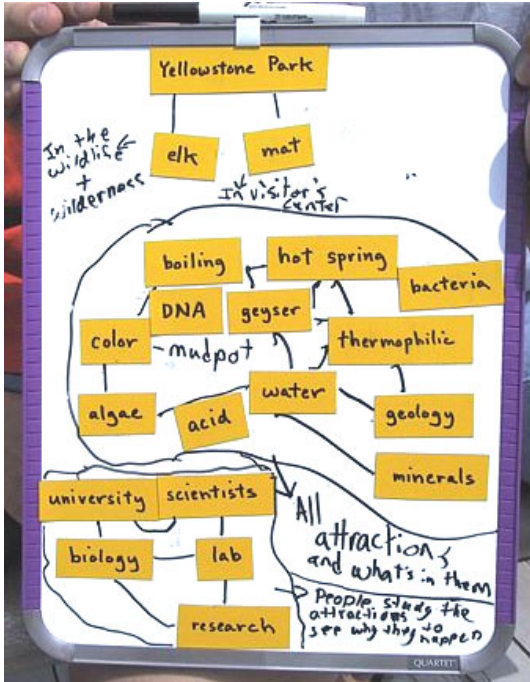 Yellowstone Park
In the
wildlife
+
wilderness
elk
mat
In visitor's
center
boiling
hot spring
bacteria
DNA
geyser
color
mudpot
thermophilic
water
algae
acid
geology
minerals
university
scientists
All
attractions
and what's in them
biology
lab
research
People study the
attractions
see why they to
happen
QUARTET